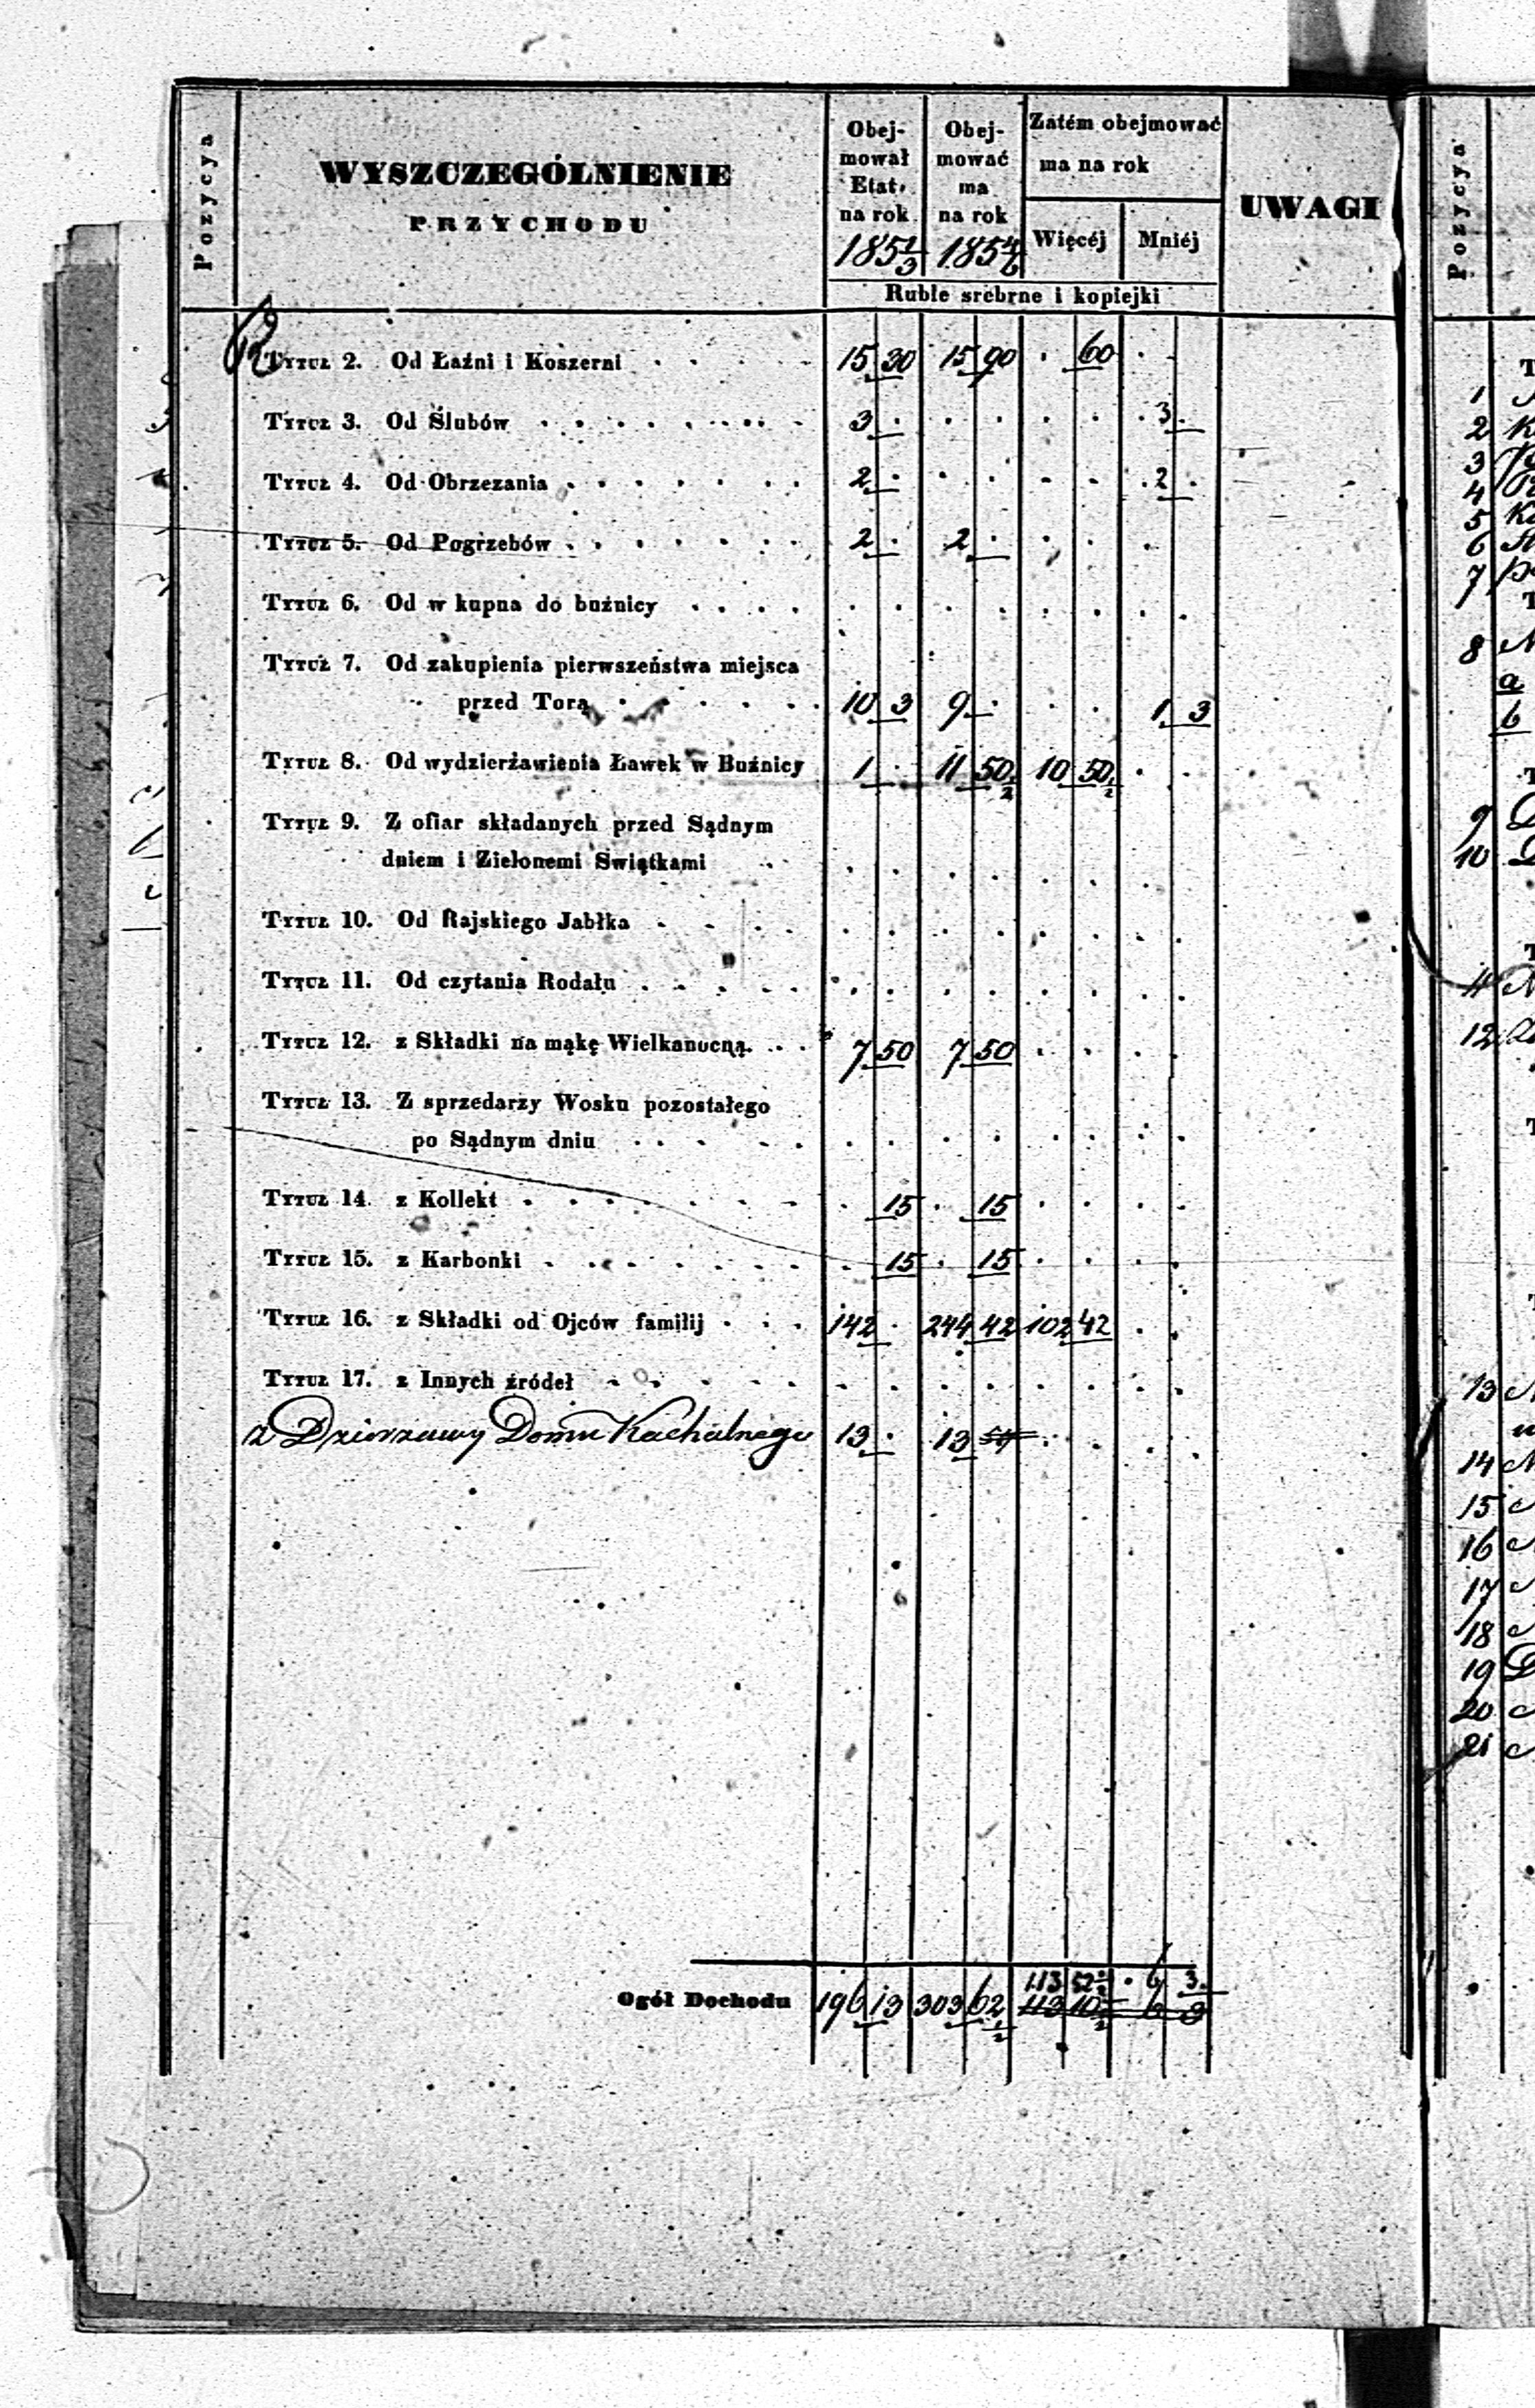 Pozycya
WYSZCZEGÓLNIENIE
PRZYCHODU
Obej-
mował
Etat
na rok
185 1/3
Obej-
mować
ma
na rok
185 4/6
Zatém obejmować
ma na rok
Więcéj
Mniéj
Ruble srebrne i kopiejki
UWAGI
Tytuł 2. Od Łaźni i Koszerni 15 30 15 90 60
Tytuł 3. Od Ślubów 3 3
Tytuł 4. Od Obrzezania 2 2
Tytuł 5. Od Pogrzebów 2 2
Tytuł 6. Od w kupna do buźnicy
Tytuł 7. Od zakupienia pierwszeństwa miejsca
przed Torą 10 3 9 1 3
Tytuł 8. Od wydzierżawienia Ławek w Buźnicy 1 11 50 1/2 10 50 1/2
Tytuł 9. Z ofiar składanych przed Sądnym
dniem i Zielonemi Swiątkami
Tytuł 10. Od Rajskiego Jabłka
Tytuł 11. Od czytania Rodału
Tytuł 12. z Składki na mąkę Wielkanocną 7 50 7 50
Tytuł 13. Z sprzedarzy Wosku pozostałego
po Sądnym dniu
Tytuł 14. z Kollekt 15 15
Tytuł 15. z Karbonki 15 15
Tytuł 16. z Składki od Ojców familij 142 244 42 102 42
Tytuł 17. z Innych źródeł
z Dzierzawy Domu Kachalnego 13 13
113 52 1/2 6 3
Ogół Dochodu 196 13 303 62 1/2 113 10 1/2 6 3
Pozycya
1
2
3
4
5
6
7
8
a
b
9
10
11
12
13
14
15
16
17
18
19
20
21